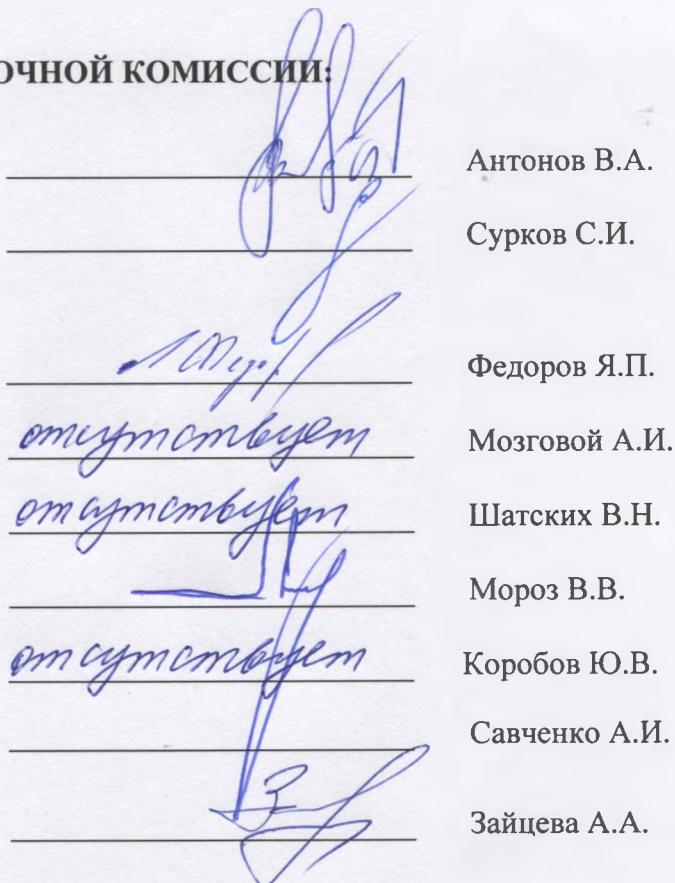 ОЧНОЙ КОМИССИИ:
Антонов В.А.
Сурков С.И.
Федоров Я.П.
отсутствует Мозговой А.И.
отсутствует Шатских В.Н.
Мороз В.В.
отсутствует Коробов Ю.В.
Савченко А.И.
Зайцева А.А.